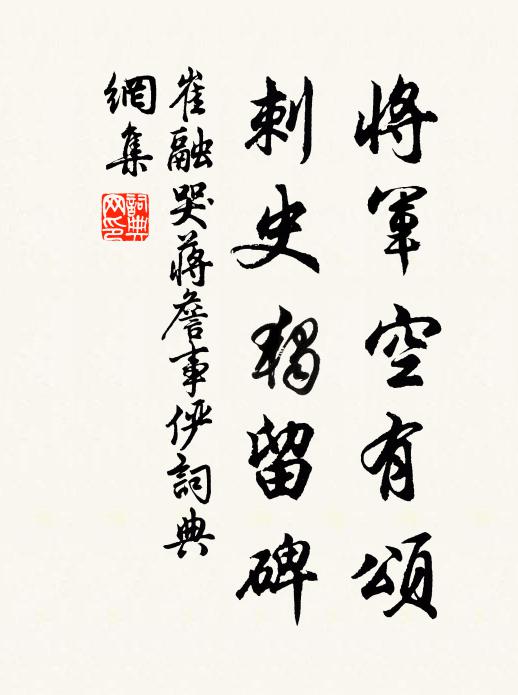 將軍空有頌
刺史獨留碑
崔融哭蔣詹事儼詞典
網集
詞典
网印